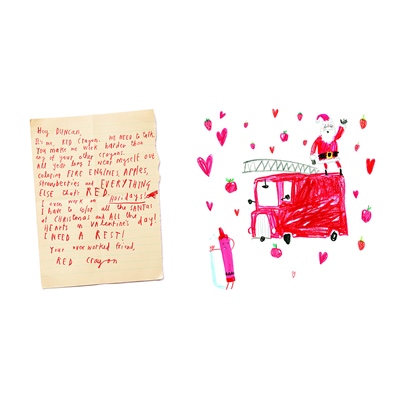 Hey DUNCAN,
It's me, RED Crayon. WE NEED to talk.
You make me work harder than
any of your other crayons.
All year long I wear myself out
coloring FIRE ENGINES, APPLES,
Strawberries and EVERYTHING
ELSE that's RED.
I even work on Holidays!
I have to color all the SANTAS
at Christmas and ALL the
HEARTS on Valentine's day!
I NEED A REST!
Your overworked friend,
RED Crayon